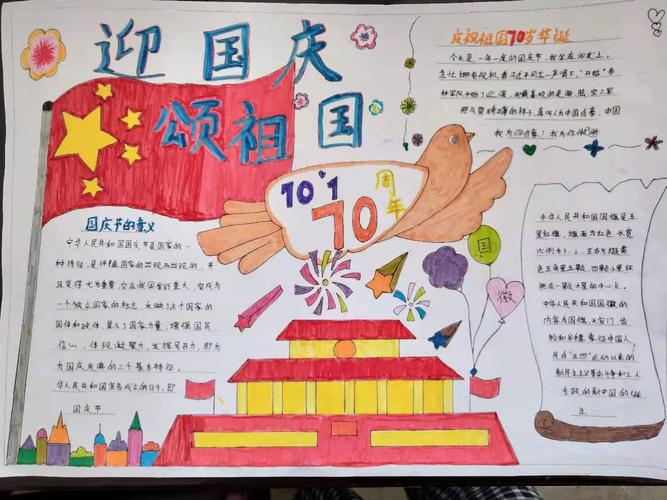 迎国庆
颂祖国
庆祝祖国70岁华诞
今天是一年一度的国庆节,我坐在沙发上,
我为你骄傲!我为你
10·1
70
周年
国庆节的意义
中华人民共和国国庆节是国家的一
种特征,是伴随国家的出现而出现的,并
且变得尤为重要,它在我国有重大,它成为
一个独立国家的标志,反映了这个国家的
国体和政体,显示了国家力量,增强国民
信心,体现凝聚力,发挥号召力,即为
为国庆庆典的三个基本特征。
华人民共和国宣告成立的日子,即
国庆节
国
徽
中华人民共和国国旗是五
星红旗,旗面为红色,长宽
比例为3:2。左上方缀黄
色五角星五颗,四颗小星环
拱在一颗大星的
中华人民共和国国徽的
内容为国旗,天安门,齿
轮和谷穗,象征中国人
民自"五四"运动以来的
新民主主义革命斗争和工人
专政的新中国的诞
生